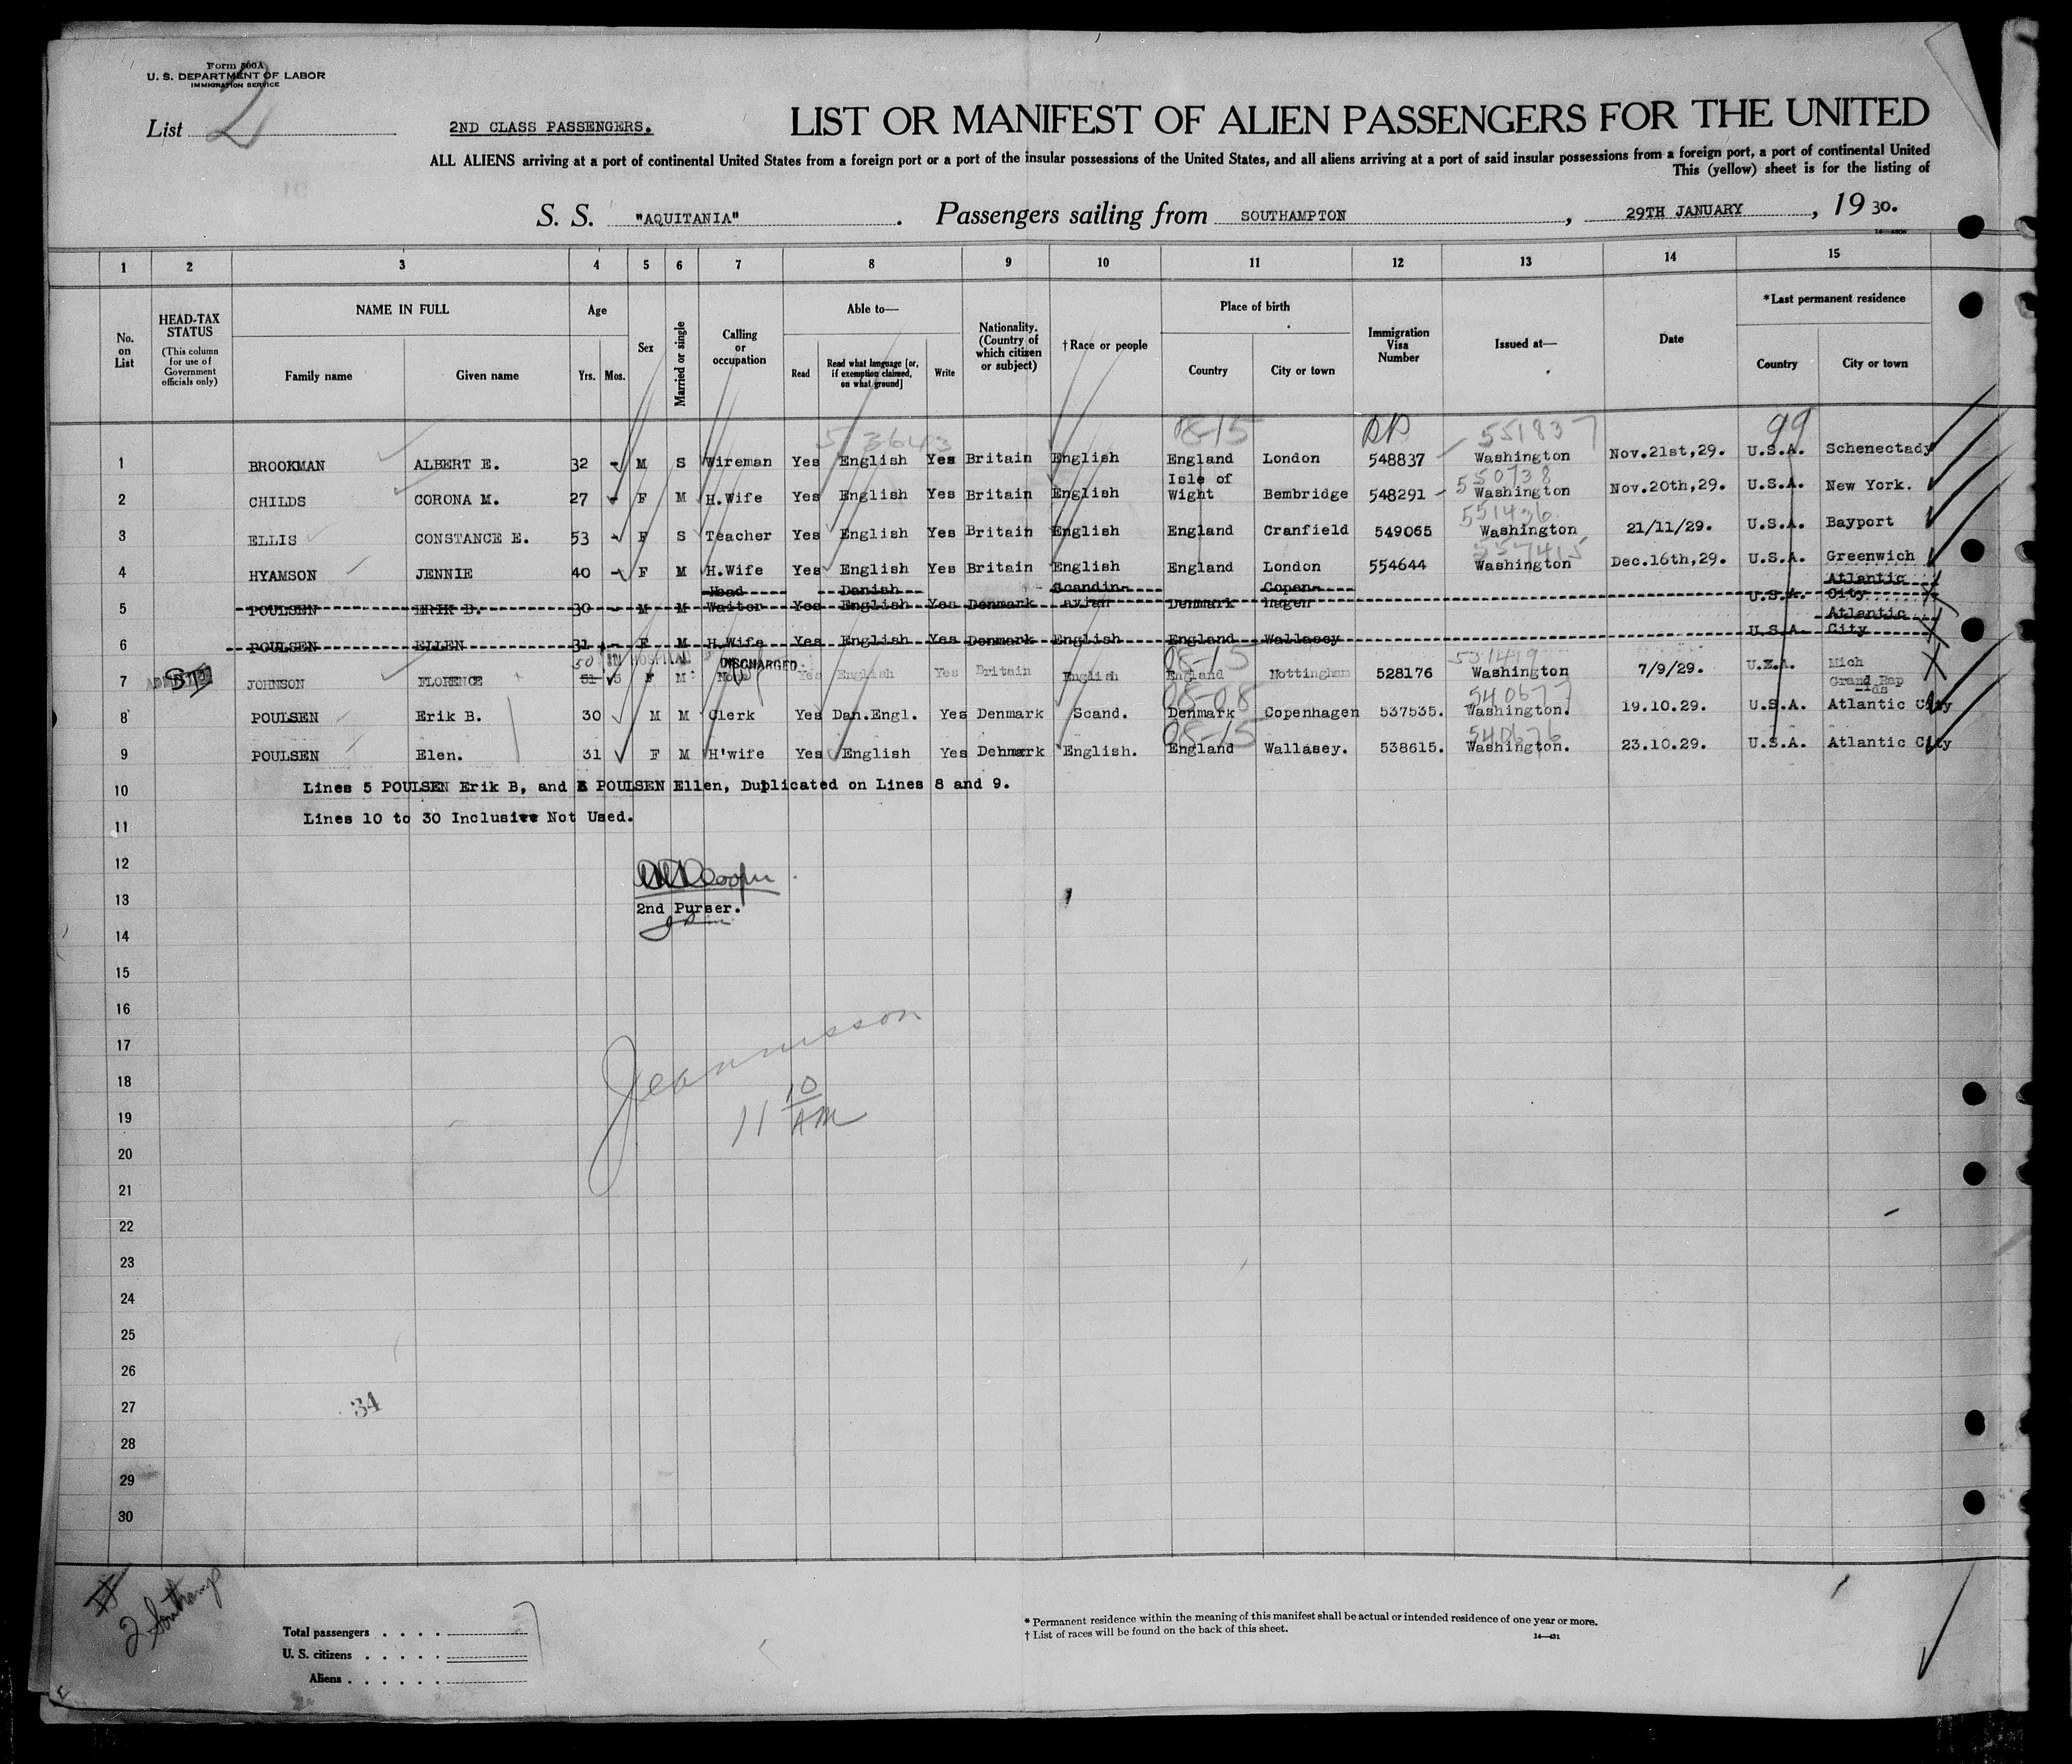 Form 500A
U. S. DEPARTMENT OF LABOR
IMMIGRATION SERVICE
List 2
2ND CLASS PASSENGERS.
LIST OR MANIFEST OF ALIEN PASSENGERS FOR THE UNITED
ALL ALIENS arriving at a port of continental United States from a foreign port or a port of the insular possessions of the United States, and all aliens arriving at a port of said insular possessions from a foreign port, a port of continental United
This (yellow) sheet is for the listing of
S. S. "AQUITANIA". Passengers sailing from SOUTHAMPTON, 29TH JANUARY, 19 30.
1 2 3 4 5 6 7 8 9 10 11 12 13 14 15
No. on List
HEAD-TAX STATUS
(This column for use of Government officials only)
NAME IN FULL
Family name Given name
Age
Yrs. Mos.
Sex
Married or single
Calling or occupation
Able to—
Read Read what language [or, if exemption claimed, on what ground] Write
Nationality. (Country of which citizen or subject)
†Race or people
Place of birth
Country City or town
Immigration Visa Number
Issued at—
Date
*Last permanent residence
Country City or town
08-15 551837 99
1 BROOKMAN ALBERT E. 32 - M S Wireman Yes English Yes Britain English England London 548837 Washington Nov.21st,29. U.S.A. Schenectady
550738
2 CHILDS CORONA M. 27 - F M H.Wife Yes English Yes Britain English Isle of Wight Bembridge 548291 Washington Nov.20th,29. U.S.A. New York.
551436
3 ELLIS CONSTANCE E. 53 - F S Teacher Yes English Yes Britain English England Cranfield 549065 Washington 21/11/29. U.S.A. Bayport
557415
4 HYAMSON JENNIE 40 - F M H.Wife Yes English Yes Britain English England London 554644 Washington Dec.16th,29. U.S.A. Greenwich
5 POULSEN ERIK B. 30 - M M Head Waiter Yes Danish English Yes Denmark Scandin-avian Denmark Copen-hagen U.S.A. Atlantic City
6 POULSEN ELLEN 31 - F M H.Wife Yes English Yes Denmark English England Wallasey U.S.A. Atlantic City
50 IN HOSPITAL DISCHARGED 08-15 531449
7 JOHNSON FLORENCE 51 5 F M None Yes English Yes Britain English England Nottingham 528176 Washington 7/9/29. U.S.A. Mich Grand Rap-ids
08-08 540677
8 POULSEN Erik B. 30 M M Clerk Yes Dan.Engl. Yes Denmark Scand. Denmark Copenhagen 537535. Washington. 19.10.29. U.S.A. Atlantic City
08-15 540676
9 POULSEN Elen. 31 F M H'wife Yes English Yes Denmark English. England Wallasey. 538615. Washington. 23.10.29. U.S.A. Atlantic City
10 Lines 5 POULSEN Erik B, and 6 POULSEN Ellen, Duplicated on Lines 8 and 9.
11 Lines 10 to 30 Inclusive Not Used.
12
13 2nd Purser.
14
15
16
17
18
11 10 AM
19
20
21
22
23
24
25
26
27
34
28
29
30
2 Southamp
Total passengers
U. S. citizens
Aliens
* Permanent residence within the meaning of this manifest shall be actual or intended residence of one year or more.
† List of races will be found on the back of this sheet.